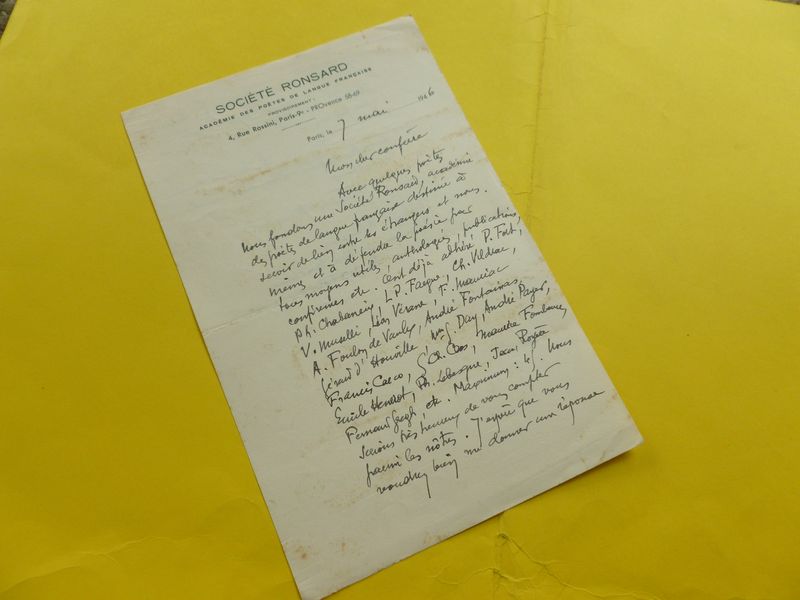 SOCIÉTÉ RONSARD
ACADÉMIE DES POÈTES DE LANGUE FRANÇAISE
PROVISOIREMENT :
4, Rue Rossini, Paris-9e - PROvence 58-69
Paris, le 7 mai 1946
Mon cher confrère
Avec quelques poètes
nous fondons une Société Ronsard, académie
des poètes de langue française destinée à
servir de lien entre les étrangers et nous
mêmes et à défendre la poésie par
tous moyens utiles, anthologies, publications,
conférences etc. Ont déjà adhéré P. Fort,
Ph. Chabaneix, L.P. Fargue, Ch. Vildrac,
V. Muselli, Léon Vérane, F. Mauriac,
A. Foulon de Vaulx, André Fontainas,
Gérard d'Houville, Day, André Payer,
Francis Carco, Maurice Fombeure,
Emile Henriot, Ph. Lebesque, Jean Royère
Fernand Gregh, etc. Maximum : 45. Nous
serions très heureux de vous compter
parmi les nôtres. J'espère que vous
voudrez bien me donner une réponse